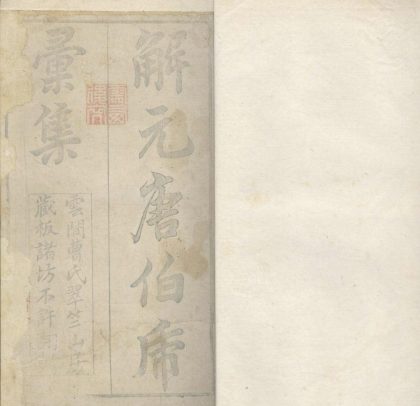 解元唐伯虎
彙集
雲間曹氏翠竺山庄
藏板諸坊不許